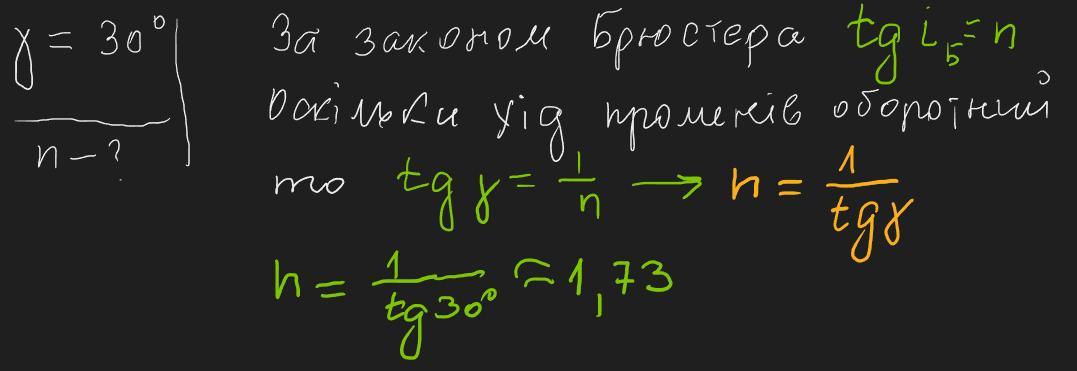 γ = 30°
n - ?
За законом Брюстера tg i_Б = n
Оскільки хід променів оборотний
то tg γ = 1/n → n = 1/tgγ
n = 1/tg30° ≈ 1,73